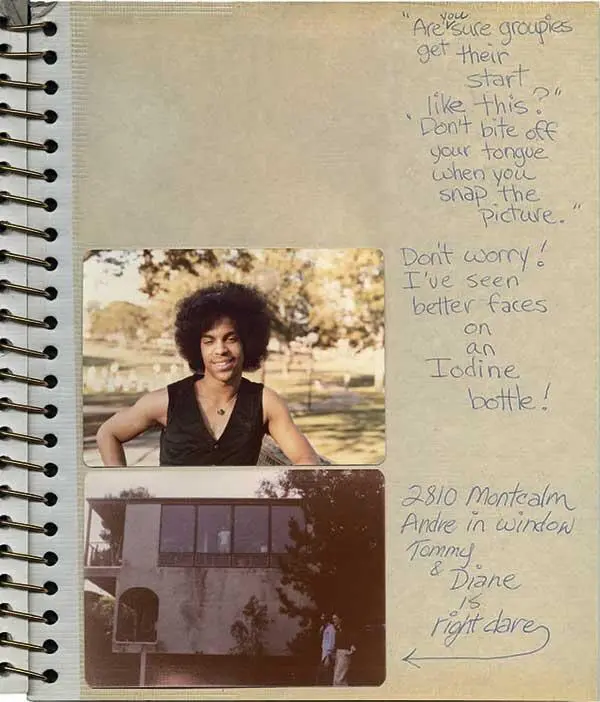 "Are you sure groupies
get their
start
like this?"
"Don't bite off
your tongue
when you
snap the
picture."
Don't worry!
I've seen
better faces
on
an
Iodine
bottle!
2810 Montcalm
Andre in window
Tommy
& Diane
is
right dare